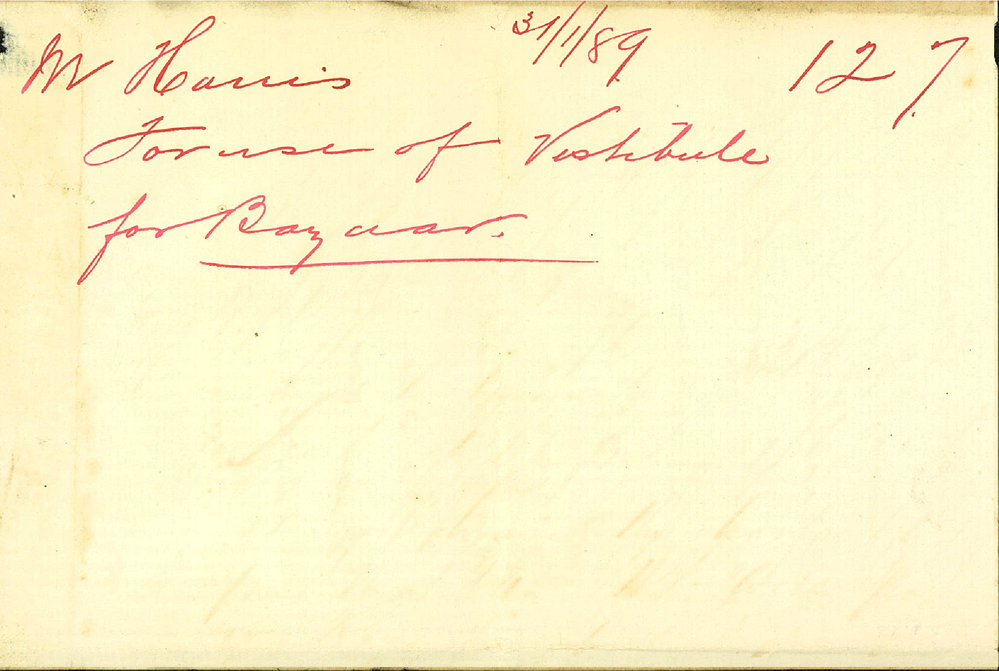 Mr Harris 31/1/89 127
For use of Vestibule
for Bazaar.